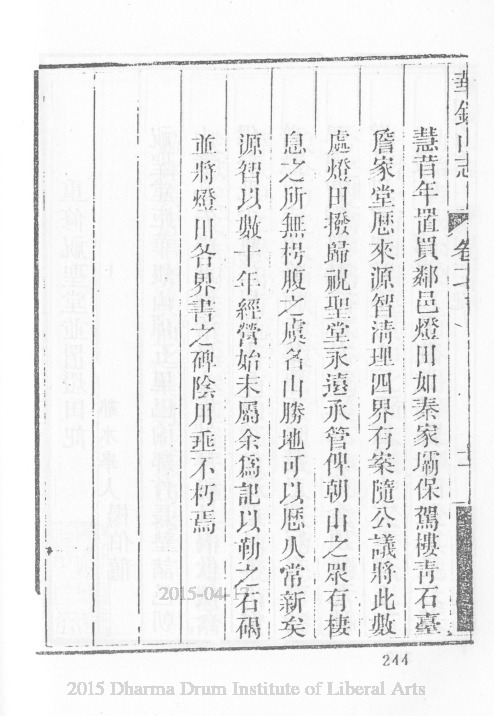 華銀山志
慧昔年置買鄰邑燈田如秦家壩保駕樓青石臺
詹家堂歷來源智清理四界有案隨公議將此數
處燈田撥歸祝聖堂永遠承管俾朝山之眾有棲
息之所無枵腹之虞名山勝地可以歷久常新矣
源智以數十年經營始末屬余為記以勒之石碣
並將燈田各界書之碑陰用垂不朽焉
2015-04-17
244
2015 Dharma Drum Institute of Liberal Arts